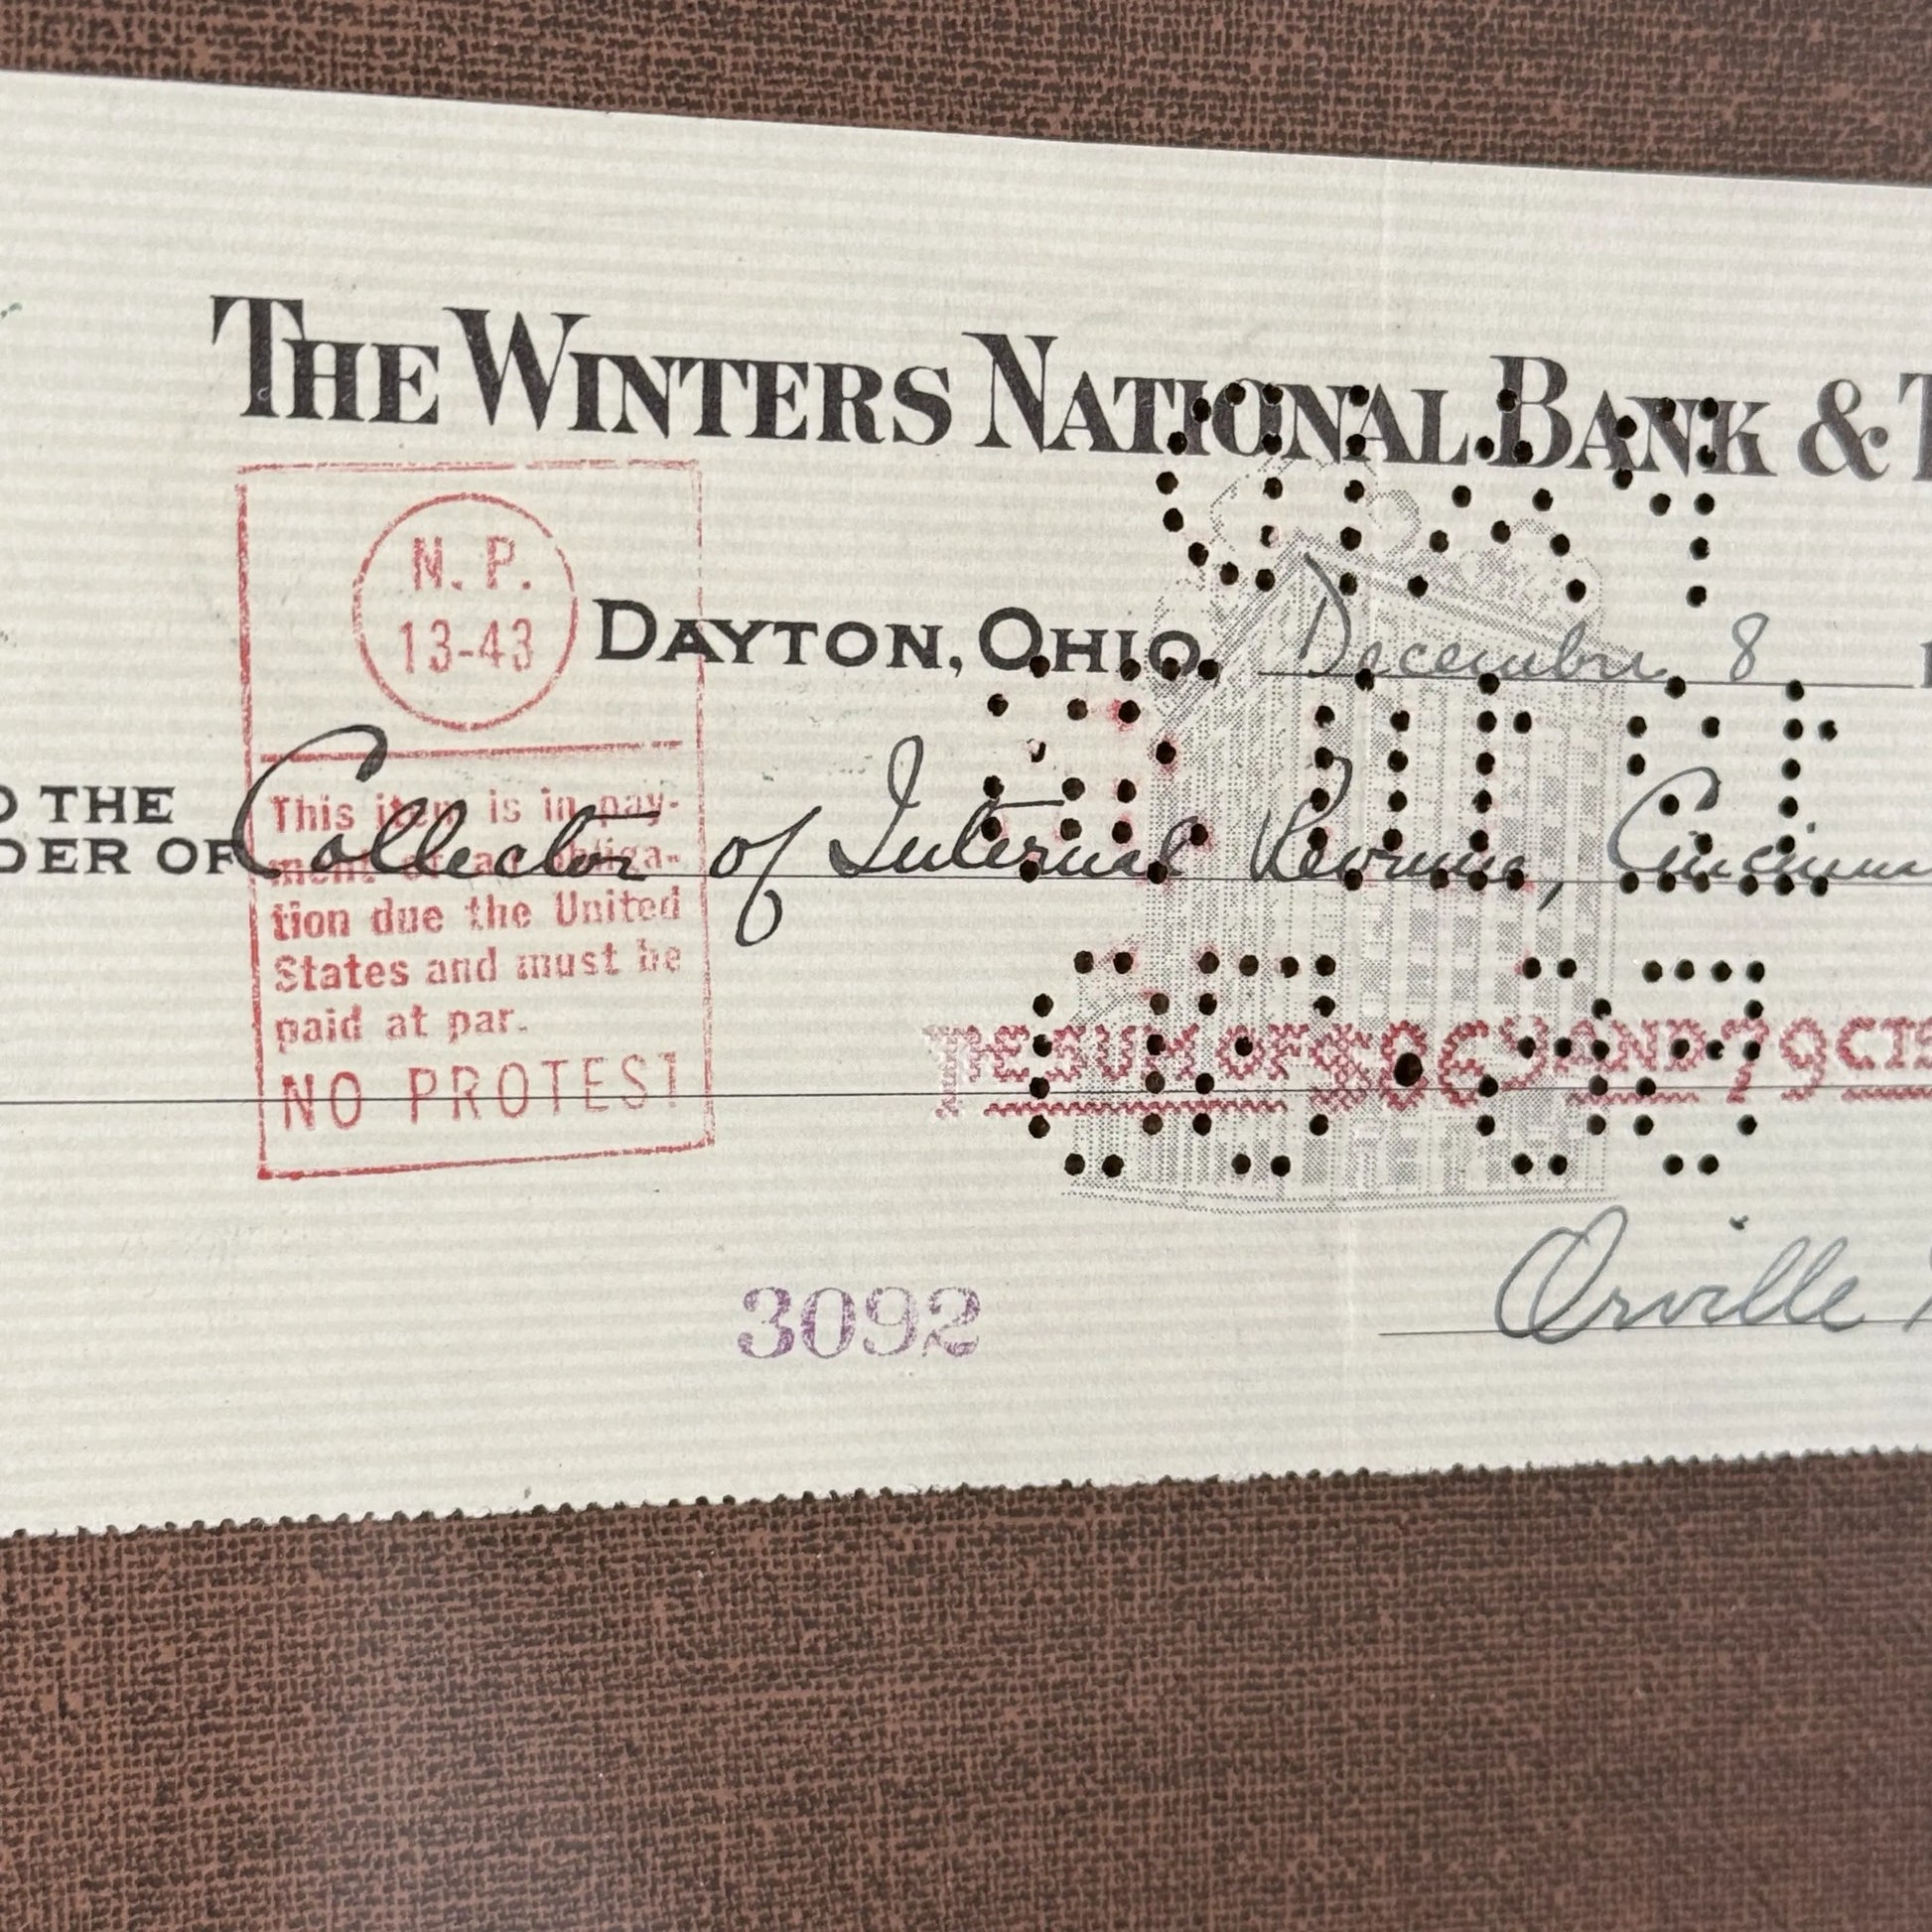 THE WINTERS NATIONAL BANK &
N. P.
13-43
DAYTON, OHIO, December 8
THE
OF Collector of Internal Revenue,
This item is in pay-
ment of an obliga-
tion due the United
States and must be
paid at par.
NO PROTEST
THE SUM OF AND 79 CTS
3092
Orville